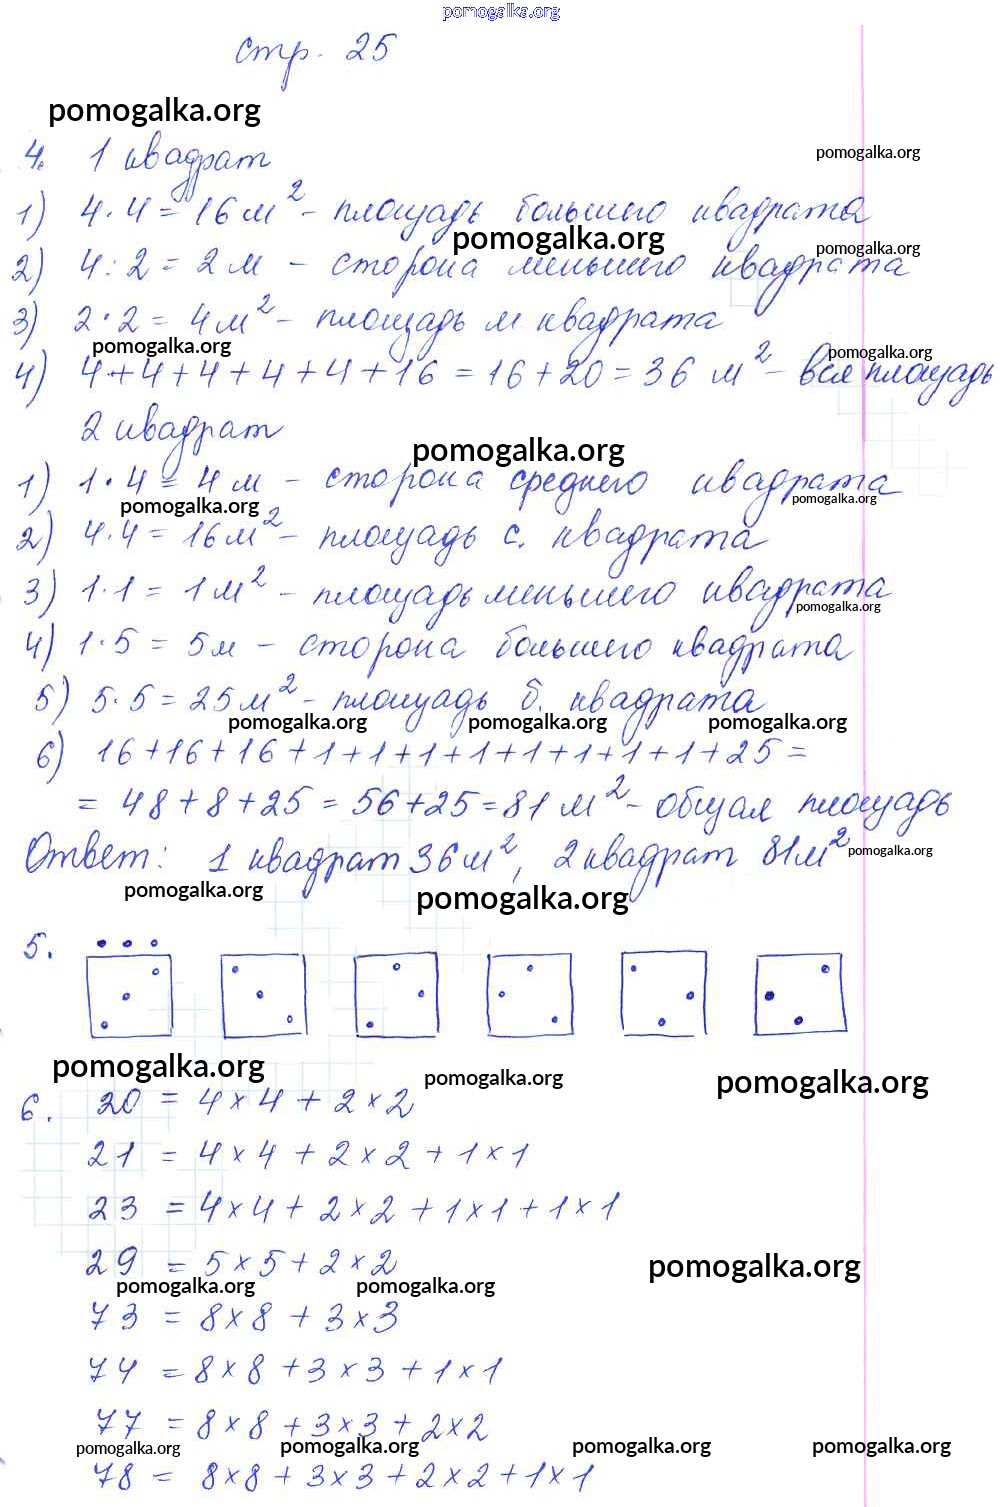 pomogalka.org
стр. 25
pomogalka.org
4. 1 квадрат
pomogalka.org
1) 4·4=16м² - площадь большего квадрата
pomogalka.org
pomogalka.org
2) 4:2=2м - сторона меньшего квадрата
3) 2·2=4м² - площадь м квадрата
pomogalka.org
pomogalka.org
4) 4+4+4+4+4+16=16+20=36 м² - вся площадь
2 квадрат
pomogalka.org
1) 1·4=4м - сторона среднего квадрата
pomogalka.org
pomogalka.org
2) 4·4=16м² - площадь с. квадрата
3) 1·1=1м² - площадь меньшего квадрата
pomogalka.org
4) 1·5=5м - сторона большего квадрата
5) 5·5=25м² - площадь б. квадрата
pomogalka.org pomogalka.org pomogalka.org
6) 16+16+16+1+1+1+1+1+1+1+1+25=
=48+8+25=56+25=81м² - общая площадь
Ответ: 1 квадрат 36м², 2 квадрат 81м²
pomogalka.org
pomogalka.org pomogalka.org
5.
pomogalka.org pomogalka.org pomogalka.org
6. 20 = 4×4+2×2
21 = 4×4+2×2+1×1
23 = 4×4+2×2+1×1+1×1
29 = 5×5+2×2
pomogalka.org
pomogalka.org pomogalka.org
73 = 8×8+3×3
74 = 8×8+3×3+1×1
77 = 8×8+3×3+2×2
pomogalka.org pomogalka.org pomogalka.org pomogalka.org
78 = 8×8+3×3+2×2+1×1